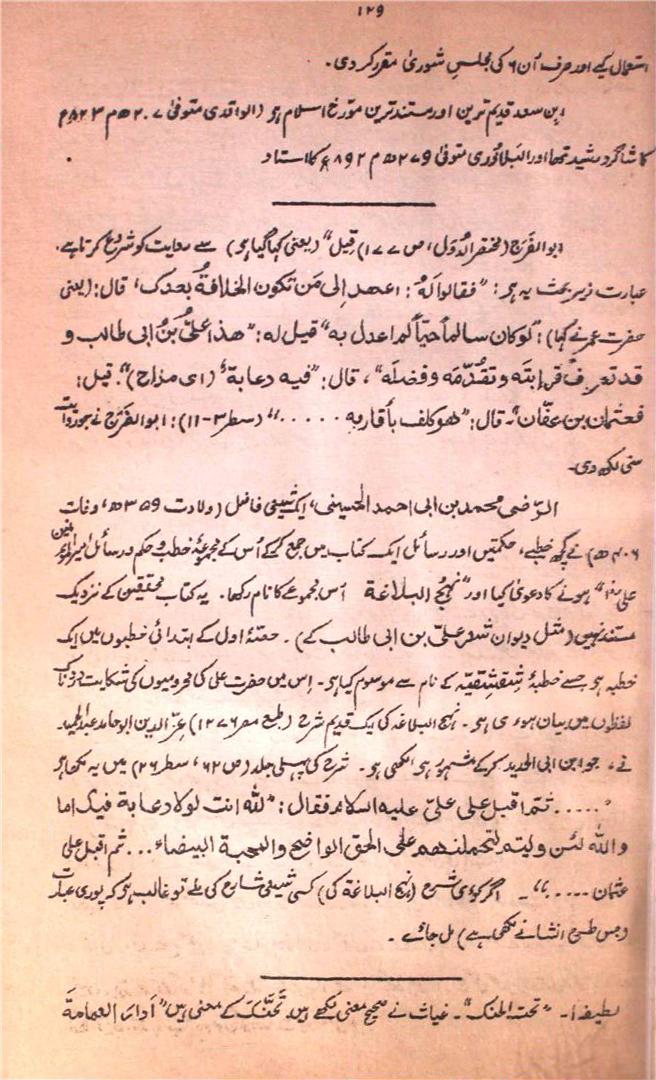 ۱۲۹
استعمال کیے اور صرف اُن ۶ کی مجلسِ شوریٰ مقرر کر دی۔
ابن سعد قدیم ترین اور مستند ترین مورّخ اسلام ہو (الواقدی متوفیٰ ۲۰۷ھ م ۸۲۳ء
کا شاگرد رشید تھا اور البلاذری متوفیٰ ۲۷۹ھ م ۸۹۲ء کا استاد
ابوالفَرَج (مختصر الدُوَل، ص ۱۷۷) قِیل" (یعنی کہا گیا ہو) سے روایت کو شروع کرتا ہے۔
عبارت زیر بحث یہ ہو: "فقالوا لَہُ: اعھد اِلی مَن تکون الخلافةُ بعدک، قال: (یعنی
حضرت عمر نے کہا): "لو کان سالماً حیّاً لم اعدل بہ" قیل لہ: "ھذا علیُّ بنُ ابی طالب و
قد تعرفُ قرابتَہ و تقدُّمَہ و فضلَہ"، قال: "فیہ دعابة" (ای مزاح)". قیل:
فعثمان بن عفّان"۔ قال: "ھو کلف بأقاربہ ....." (سطر ۳-۱۱): ابوالفَرَج نے جو روایت
سنی لکھ دی۔
الرّضی محمد بن ابی احمد الحسینی، ایک شیعی فاضل (ولادت ۳۵۹ھ، وفات
۴۰۶ھ) نے کچھ خطبے، حکمتیں اور رسائل ایک کتاب میں جمع کر کے اُس کے مجموعۂ خطب و حکم و رسائل امیرالمومنین
علی ہونے کا دعویٰ کیا اور "نہج البلاغة اُس مجموعے کا نام رکھا۔ یہ کتاب محققین کے نزدیک
مستند نہیں (مثل دیوان شعر علی بن ابی طالب کے)۔ حصّۂ اول کے ابتدائی خطبوں میں ایک
خطبہ ہو جسے خطبۂ شِقشِقیّہ کے نام سے موسوم کیا ہو۔ اِس میں حضرت علی کی محرومیوں کی شکایت دردناک
لفظوں میں بیان ہوئی ہو۔ نہج البلاغہ کی ایک قدیم شرح (طبع مصر ۱۲۷۶) عزّ الدین ابو حامد عبدالحمید۔
نے، جو ابن ابی الحدید کر کے مشہور ہو لکھی ہو۔ شرح کی پہلی جلد (ص ۶۲، سطر ۲۶) میں یہ لکھا ہو
"..... ثم اقبل علی علیّ علیہ السلام فقال: "للہ انت لولا دعابة فیک اما
واللہ لئن ولیتھم لتحملنھم علی الحق الواضح والمحجة البیضاء... ثم اقبل علی
عثمان ....."۔ اگر کوئی شرح (نہج البلاغة کی) کسی شیعی شارح کی ملے تو غالب ہو کہ پوری عبارت
(جس طرح انشا نے لکھی ہے) مل جائے۔
لطیفہ ا۔ "تحت الحنک"۔ غیاث نے صحیح معنی لکھے ہیں تَحَنُّک کے معنی ہیں "اَدَارَ العِمَامَةَ